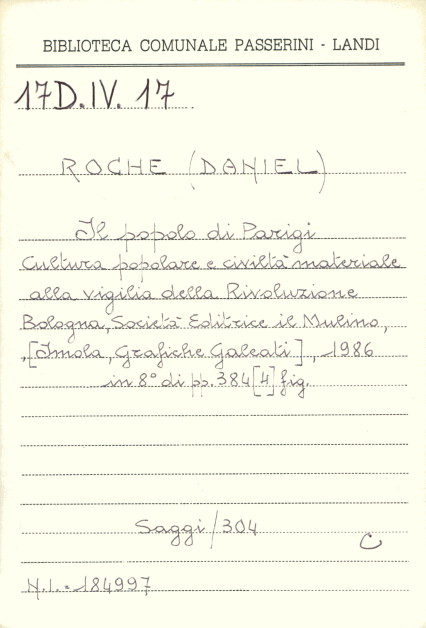 BIBLIOTECA COMUNALE PASSERINI - LANDI
17D.IV. 17
ROCHE (DANIEL)
Il popolo di Parigi
Cultura popolare e civiltà materiale
alla vigilia della Rivoluzione
Bologna, Società Editrice il Mulino,
[Imola, Grafiche Galeati], 1986
in 8° di pp. 384 [4] fig.
Saggi/304
C
N.I. 184997